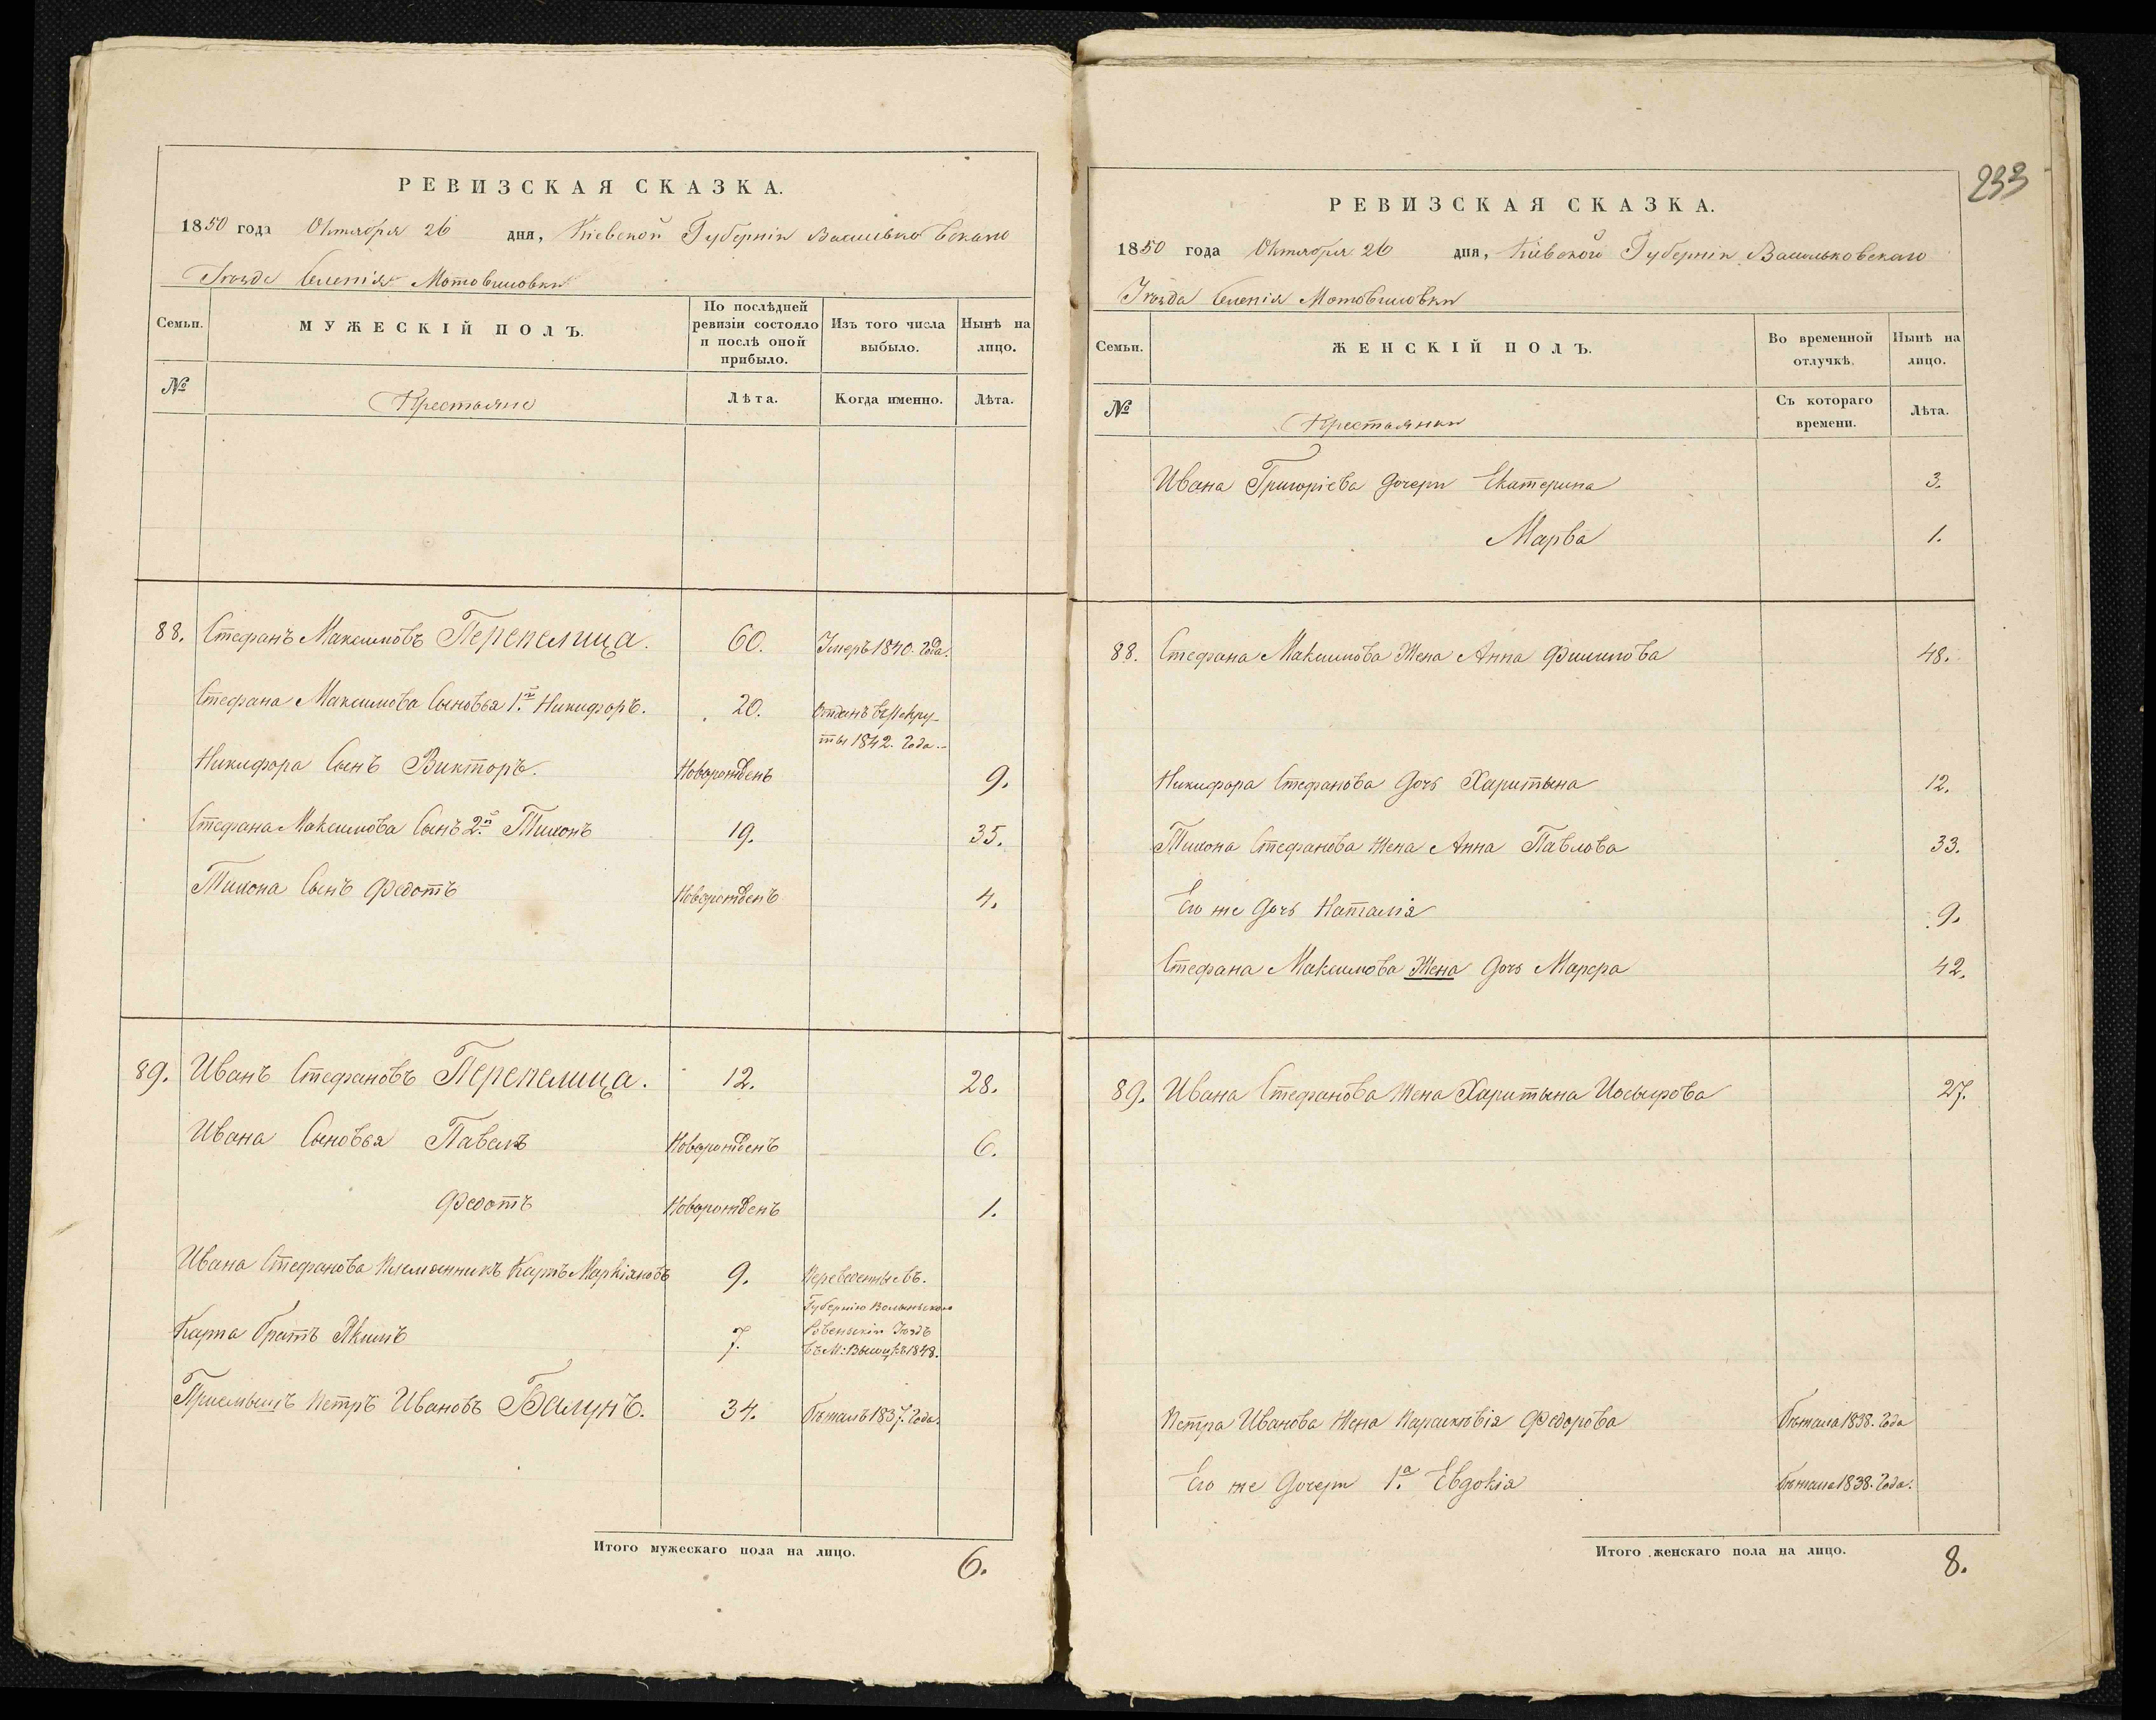 РЕВИЗСКАЯ СКАЗКА.
1850 года Октября 26 дня, Кіевской Губерніи Васильковскаго
Уѣзда Селенія Мотовиловки
Семьи.
МУЖЕСКІЙ ПОЛЪ.
По послѣдней ревизіи состояло и послѣ оной прибыло.
Изъ того числа выбыло.
Нынѣ на лицо.
№
Крестьяне
Лѣта.
Когда именно.
Лѣта.
88. Стефанъ Максимовъ Перепелица. 60. Умеръ 1840. Года.
Стефана Максимова Сыновья 1.й Никифоръ. 20. Отданъ въ Рекру-
ты 1842. Года.
Никифора Сынъ Викторъ. Новорожденъ 9.
Стефана Максимова Сынъ 2.й Тихонъ 19. 35.
Тихона Сынъ Федотъ Новорожденъ 4.
89. Иванъ Стефановъ Перепелица. 12. 28.
Ивана Сыновья Павелъ Новорожденъ 6.
Федотъ Новорожденъ 1.
Ивана Стефанова Племянникъ Карпъ Маркіяновъ 9. Переведенные въ.
Губернію Волынскою
Карпа Братъ Якимъ 7. Ровенскій Уездъ
въ М: 1848.
Приемышъ Петръ Ивановъ Балунъ. 34. Бѣжалъ 1837. Года.
Итого мужескаго пола на лицо. 6.
233
РЕВИЗСКАЯ СКАЗКА.
1850 года Октября 26 дня, Кіевской Губерніи Васильковскаго
Уѣзда Селенія Мотовиловки
Семьи.
ЖЕНСКІЙ ПОЛЪ.
Во временной отлучкѣ.
Нынѣ на лицо.
№
Крестьянки
Съ котораго времени.
Лѣта.
Ивана Григоріева дочери Екатерина 3.
Марва 1.
88. Стефана Максимова Жена Анна Филипова 48.
Никифора Стефанова дочь Харитына 12.
Тихона Стефанова Жена Анна Павлова 33.
Его же дочь Наталія 9.
Стефана Максимова Жена дочь Марфа 42.
89. Ивана Стефанова Жена Харитына Иосыфова 27.
Петра Иванова Жена Парасковія Федорова Бѣжала 1838. Года
Его же дочери 1.а Евдокія Бѣжала 1838. Года.
Итого женскаго пола на лицо. 8.